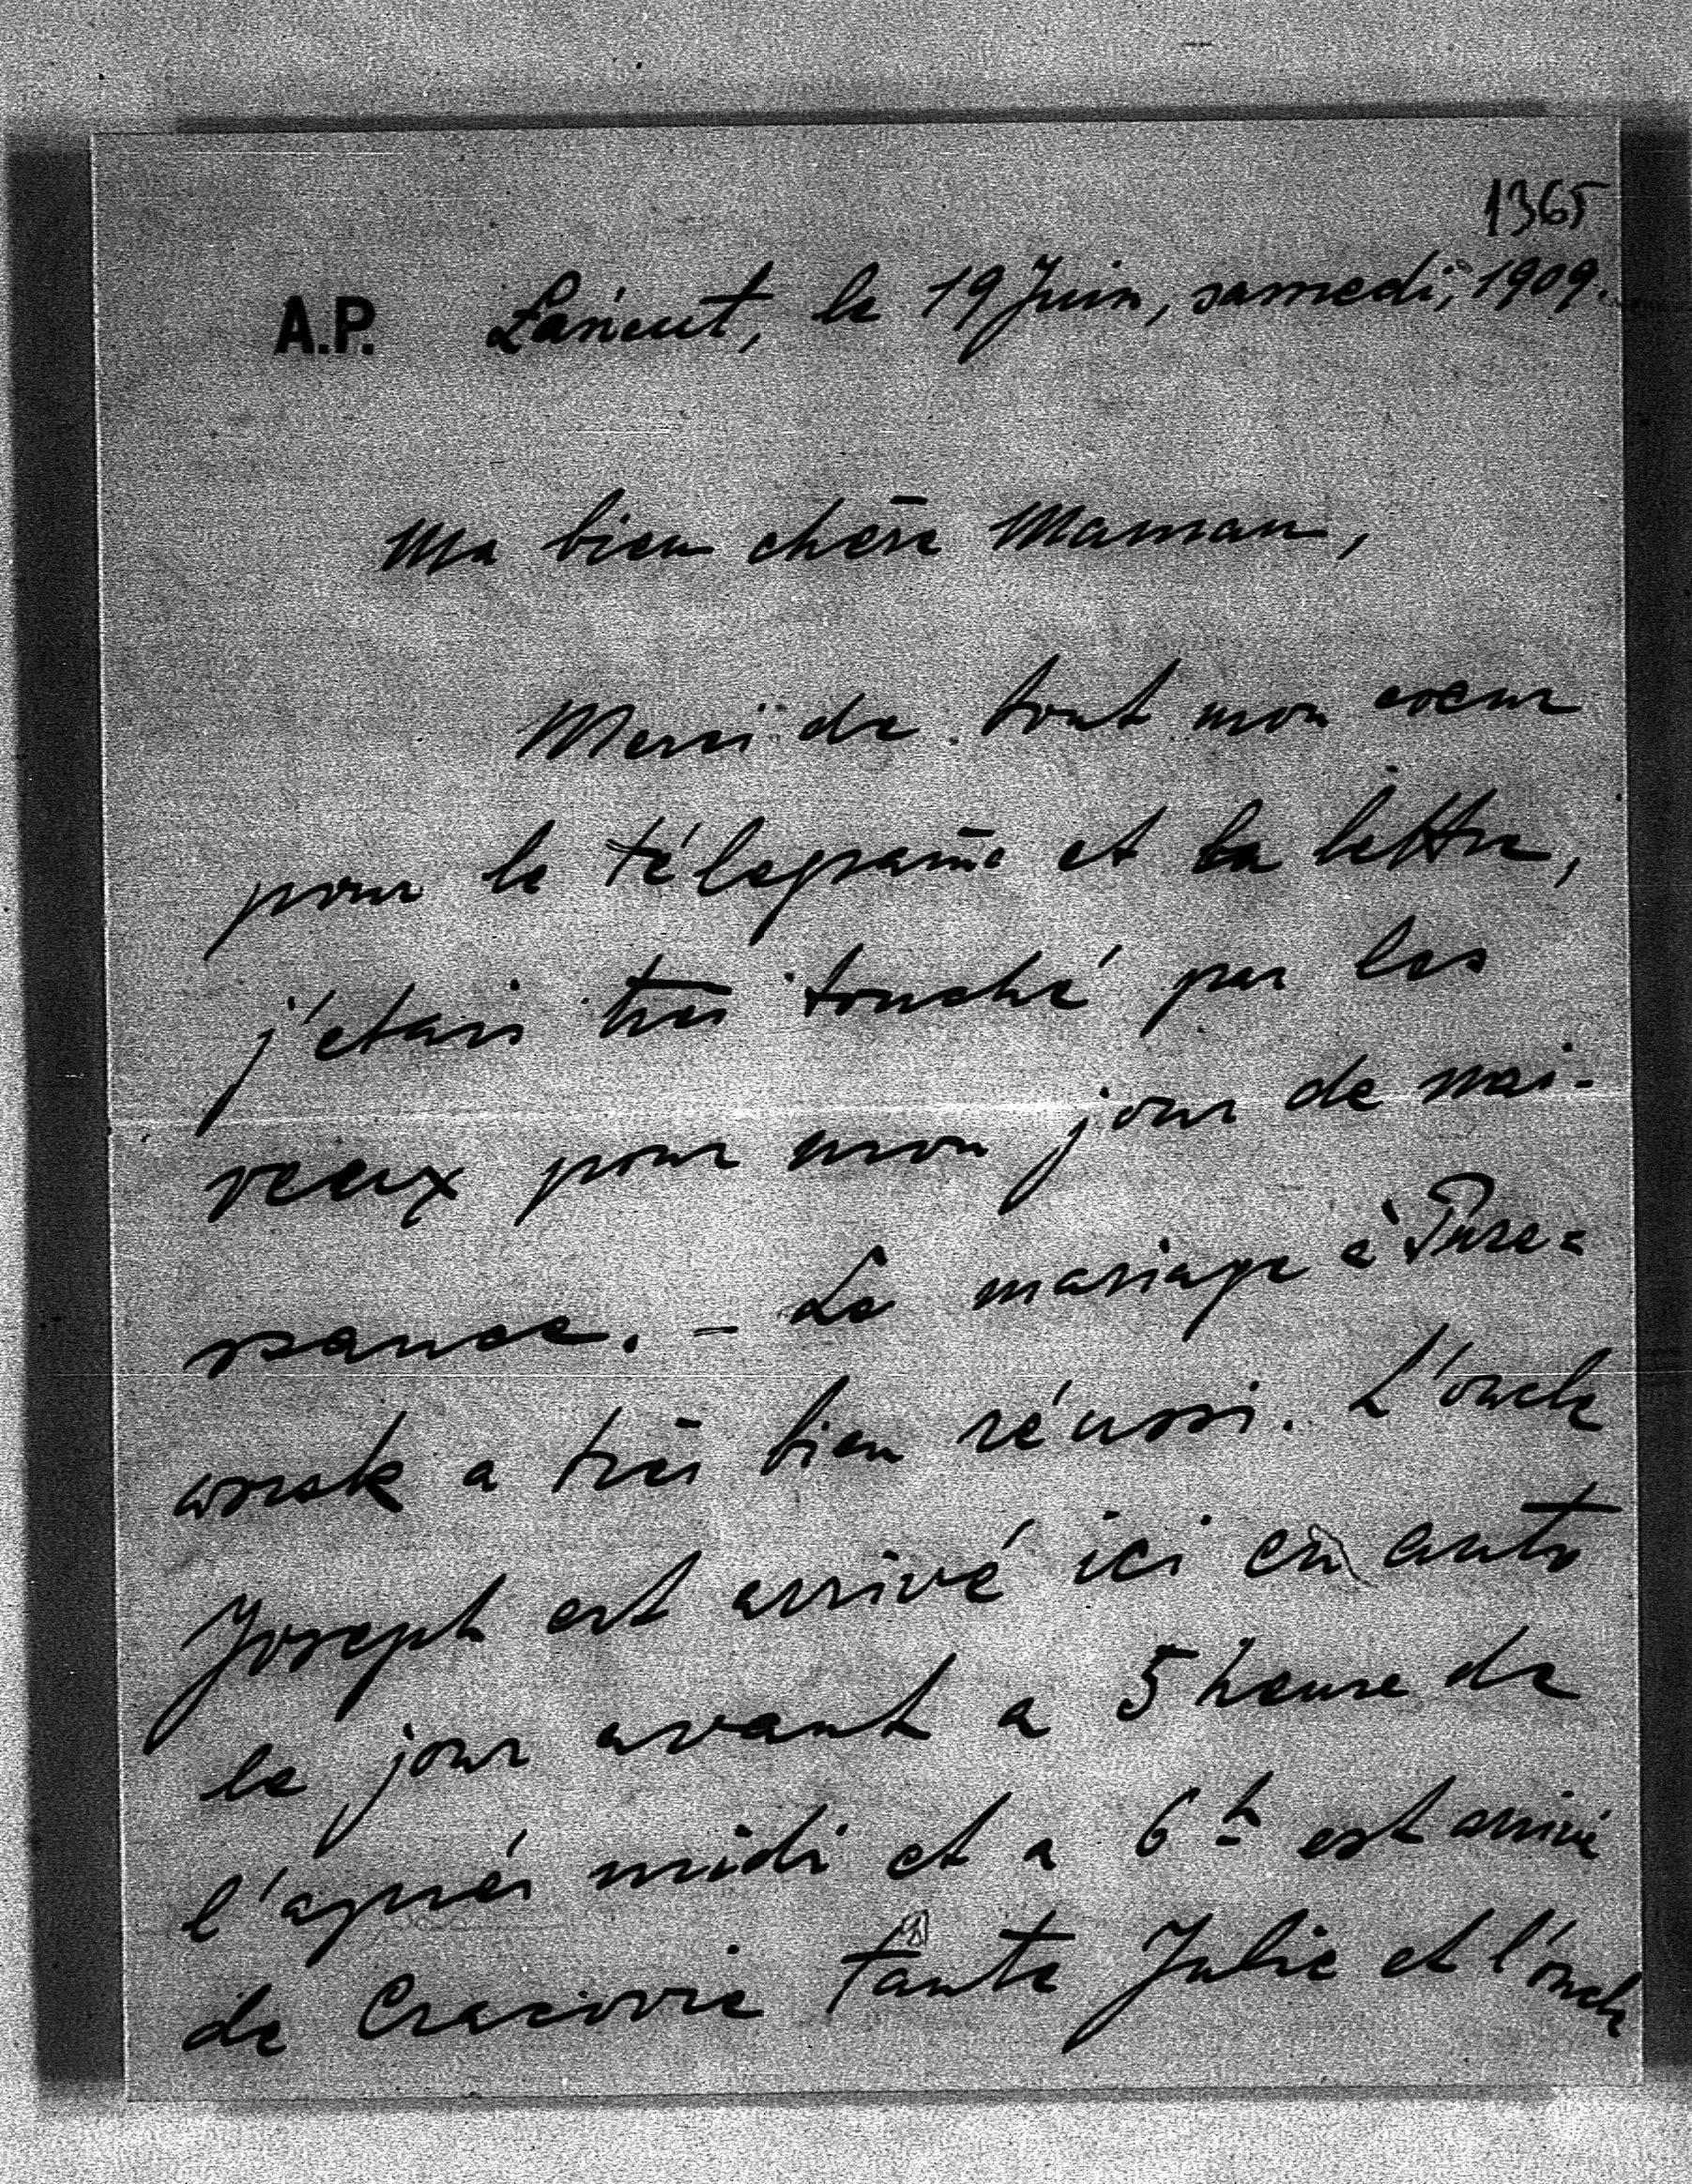 1365
A.P. Łańcut, le 19 Juin, samedi, 1909.
Ma bien chère Maman,
Merci de tout mon coeur
pour le télegram̄e et ta lettre,
j'etais très touché par les
veux pour mon jour de nai-
ssance. – Le mariage à Prze=
worsk a très bien réussi. L'oncle
Joseph est arrivé ici en auto
le jour avant a 5 heure de
l'aprés midi et a 6 h est arrivé
de Cracovie tante Julie et l'oncle